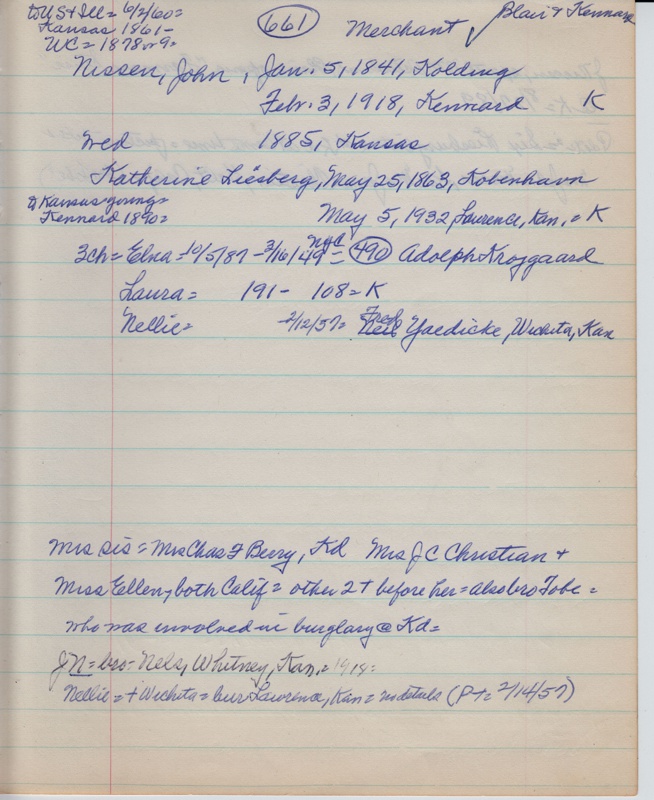 to US + Ill = 6/2/60 =
Kansas 1861 -
WC = 1878 or 9 =
661
Merchant
Blair + Kennard
Nissen, John, Jan. 5, 1841, Kolding
Febr. 3, 1918, Kennard K
Wed 1885, Kansas
Katherine Liesberg, May 25, 1863, Kobenhavn
Kansas young =
Kennard 1890 =
May 5, 1932 Lawrence, Kan. = K
3ch = Elna = 10/5/87 - 3/16/49 = NYC 490 Adolph Kroggaard
Laura = 191- 108 = K
Nellie = 2/12/57 = Fred Yaedicke, Wichita, Kan
Mrs sis = Mrs Chas F Berry, Kd Mrs J C Christian +
Miss Ellen, both Calif = other 2 + before her = also bro Tobe =
who was involved in burglary @ Kd =
JN = bro = Nels, Whitney, Kan. = 1918 =
Nellie = + Wichita = bur Lawrence, Kan = no details (P+ = 2/14/57)